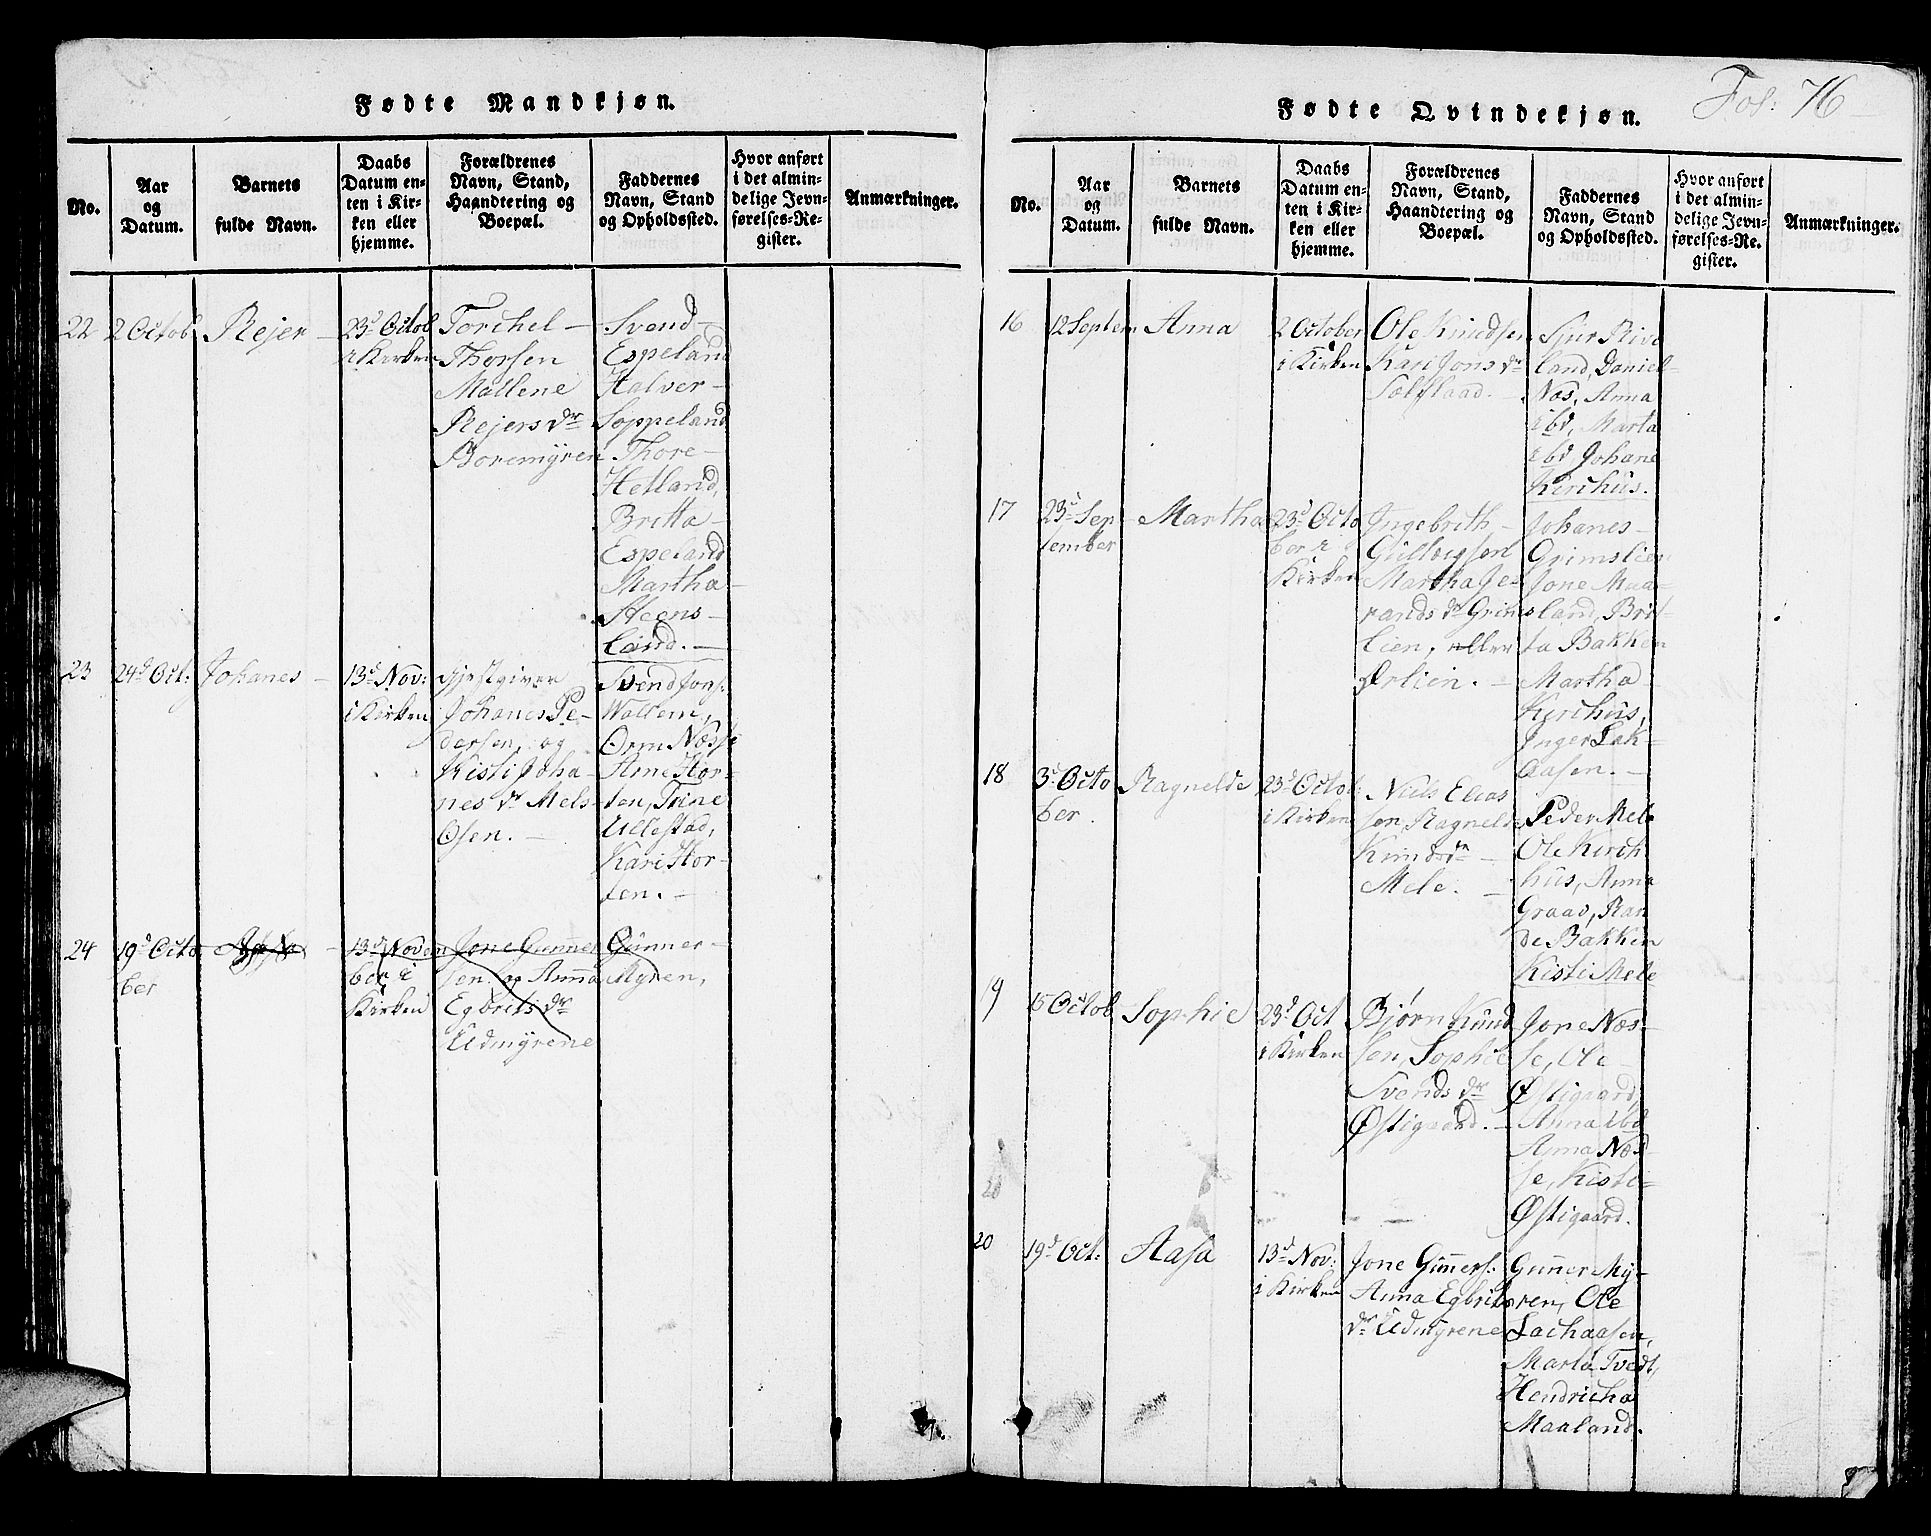 Fødte Mandkjøn.
No.
Aar
og
Datum.
Barnets
fulde Navn.
Daabs
Datum en-
ten i Kir-
ken eller
hjemme.
Forældrenes
Navn, Stand,
Haandtering og
Boepæl.
Faddernes
Navn, Stand
og Opholdssted.
Hvor anført
i det almin-
delige Jevn-
førelses-Re-
gister.
Anmærkninger.
22
2 Octob
Rejer
23d Octob
i Kirken
Torchel
Thorsen
Mallene
Rejers dr
Boremyren
Svend
Espeland
Halver
Soppeland
Thore
Hetland,
Britta
Espeland
Martha
Steens-
land.
23
24d Oct:
Johanes
13d Nov:
i Kirken
Gjestgiver
Johanes Pe-
dersen, og
Kisti Joha-
nes dr Mels-
Osen.
Svend Jons:
Wallem,
Orm Næsse
Arne Hor-
ten, Trine
Ullestad,
Kari Hor-
ten.
24
19d Octo
ber
13d Novem
ber i
Kirken
Jone Gunner
sen og Anna
Egbrits dr
Udmyrene
Gunner
Myren,
Fødte Qvindekjøn.
Fol: 76
No.
Aar
og
Datum.
Barnets
fulde Navn.
Daabs
Datum en-
ten i Kir-
ken eller
hjemme.
Forældrenes
Navn, Stand,
Haandtering og
Boepæl.
Faddernes
Navn, Stand
og Opholdssted.
Hvor anført
i det almin-
delige Jevn-
førelses-Re-
gister.
Anmærkninger.
16
12 Septem
Anna
2 October
i Kirken
Ole Knudsen
Kari Jons dr
Sjur Rive
land, Daniel
Næs, Anna
ibd, Marta
ibd Johane
Kirchus.
17
23d Sep
tember
Martha
23d Octo
ber i
Kirken
Ingebrith
Gulleigsen
Martha Je-
rands dr Grims
lien, eller
Ørlien.
Johanes
Grimslien
Jone Maa-
land, Brit-
ta Bakken
Martha
Kirchus,
Inger Lak-
aasen.
18
3d Octo
ber
Ragnelde
23d Octob:
i Kirken
Niels Elias
sen, Ragneld
Knuds dr
Mele.
Peder Mele
Ole Kirch
hus, Anna
Graad, Ran
de Bakken
Kisti Mele
19
15 Octob
Sophie
23d Oct
i Kirken
Bjørn Knud
sen, Sophie
Svends dr
Østigaard.
Jone Næs-
se, Ole
Østigaard,
Anna ibd
Anna Næs
se, Kisti
Østigaard.
20
20
19d Oct:
Aasa
13d Nov:
i Kirken
Jone Gunners:
Anna Egbrits
dr Udmyrene
Gunner My-
ren, Ole
Lachaasen,
Marta Tvedt,
Hendricha
Maaland.